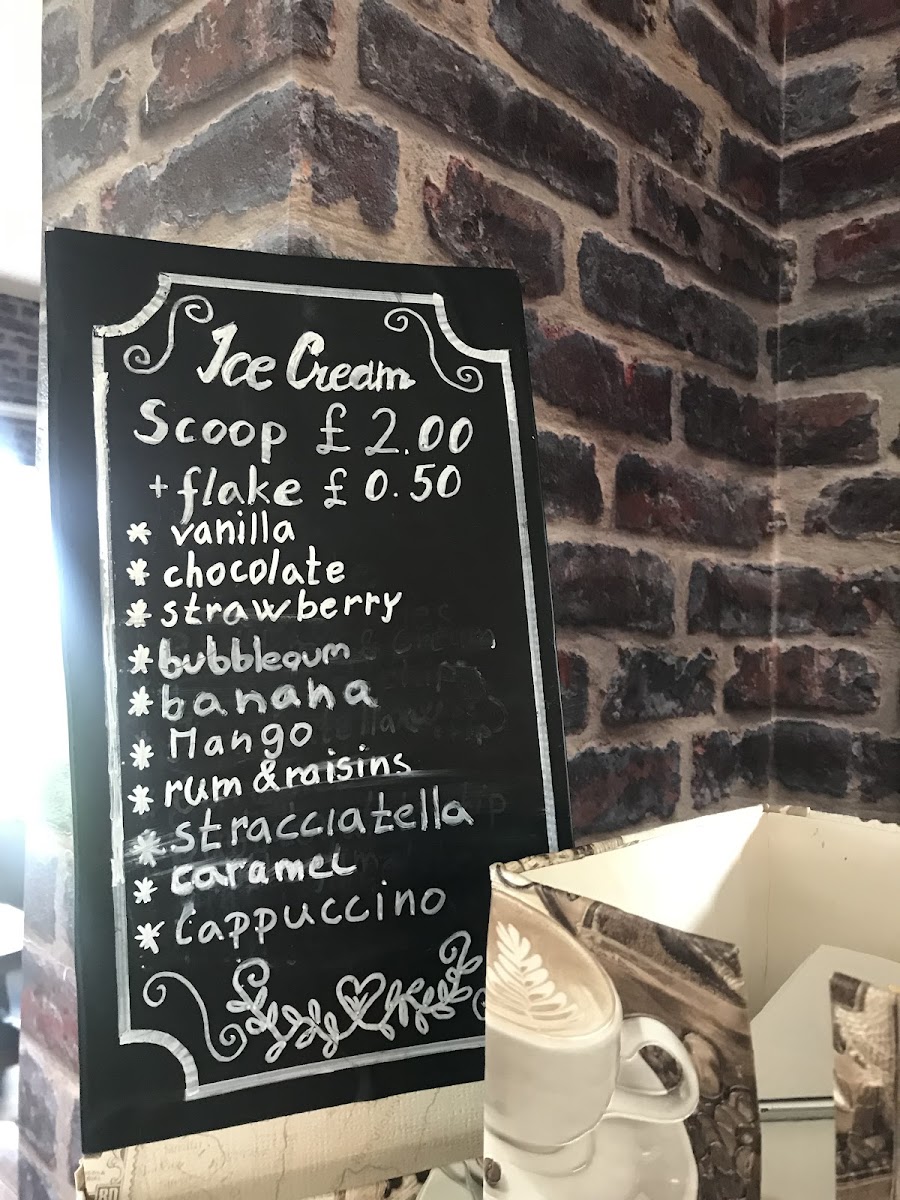 Ice Cream
Scoop £ 2.00
+ flake £ 0.50
* vanilla
* chocolate
* strawberry
* bubblegum
* banana
* Mango
* rum & raisins
* stracciatella
* caramel
* Cappuccino